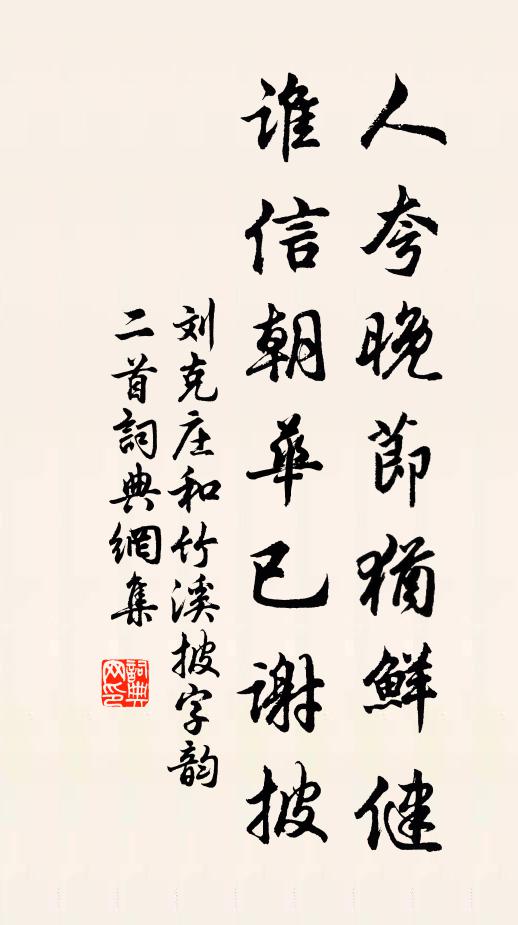 人夸晚節猶鮮健
谁信朝華已谢披
刘克庄和竹溪披字韵
二首詞典網集
詞典网印